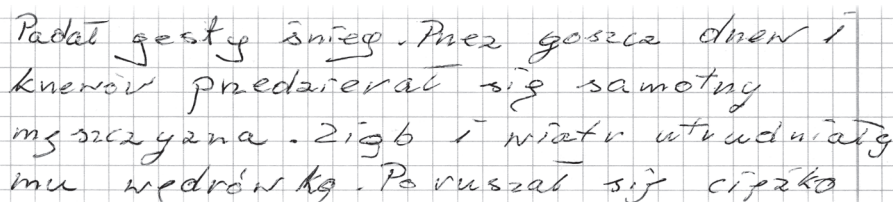 Padał gęsty śnieg. Przez gąszcz drzew i
krzewów przedzierał się samotny
mężczyzna. Ziąb i wiatr utrudniały
mu wędrówkę. Poruszał się ciężko